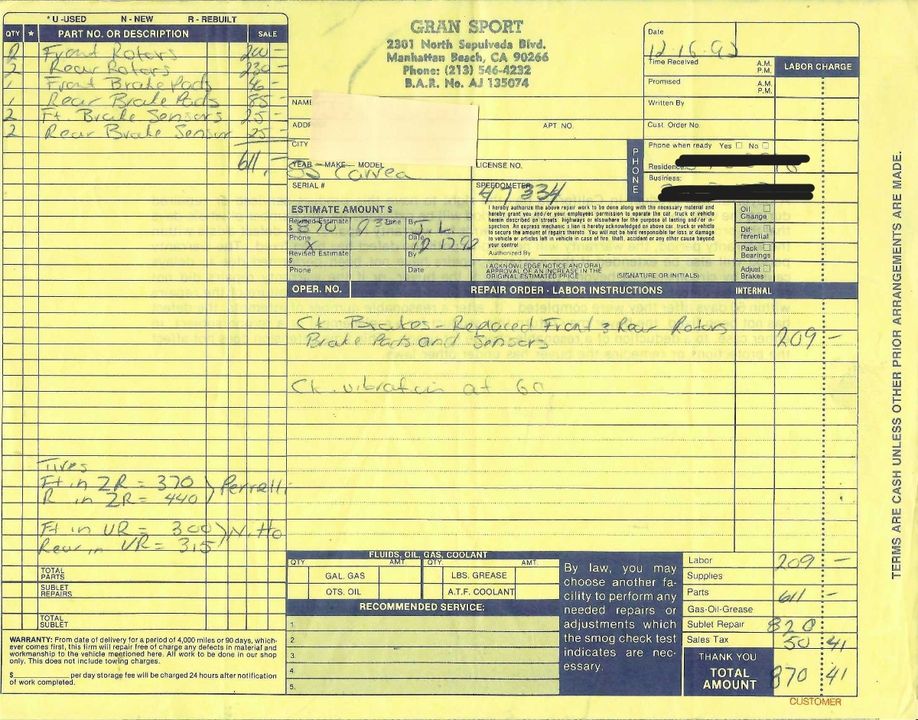 * U -USED N - NEW R - REBUILT
QTY * PART NO. OR DESCRIPTION SALE
2 Front Rotors 200 -
2 Rear Rotors 230 -
1 Front Brake Pads 46 -
1 Rear Brake Pads 85 -
2 Ft. Brake Sensors 25 -
2 Rear Brake Sensor 25 -
611 -
Tires
Ft in ZR = 370
R in ZR = 440
Perrelli
Ft in VR = 300
Rear in VR = 315
Nitto
TOTAL PARTS
SUBLET REPAIRS
TOTAL SUBLET
WARRANTY: From date of delivery for a period of 4,000 miles or 90 days, which-
ever comes first, this firm will repair free of charge any defects in material and
workmanship to the vehicle mentioned here. All work to be done in our shop
only. This does not include towing charges.
$ per day storage fee will be charged 24 hours after notification
of work completed.
GRAN SPORT
2301 North Sepulveda Blvd.
Manhattan Beach, CA 90266
Phone: (213) 546-4232
B.A.R. No. AJ 135074
NAME
ADD
APT. NO.
CITY
YEAR — MAKE — MODEL
LICENSE NO.
SERIAL #
SPEEDOMETER
47334
Date
12.16.92
Time Received A.M. P.M.
Promised A.M. P.M.
Written By
Cust. Order No.
PHONE
Phone when ready Yes No
Residence
Business:
LABOR CHARGE
ESTIMATE AMOUNT $
Revised Estimate $ 870 Time By J.L
Phone X Date 12.17.92
Revised Estimate $ By
Phone Date
I hereby authorize the above repair work to be done along with the necessary material and
hereby grant you and/or your employees permission to operate the car, truck or vehicle
herein described on streets, highways or elsewhere for the purpose of testing and/or in-
spection. An express mechanic's lien is hereby acknowledged on above car, truck or vehicle
to secure the amount of repairs thereto. You will not be held responsible for loss or damage
to vehicle or articles left in vehicle in case of fire, theft, accident or any other cause beyond
your control
Authorized By
I ACKNOWLEDGE NOTICE AND ORAL
APPROVAL OF AN INCREASE IN THE
ORIGINAL ESTIMATED PRICE
(SIGNATURE OR INITIALS)
Oil Change
Dif- ferential
Pack Bearings
Adjust Brakes
OPER. NO. REPAIR ORDER - LABOR INSTRUCTIONS INTERNAL
Ck Brakes - Replaced Front & Rear Rotors
Brake Parts and Sensors
209 -
Ck. vibration at 60
FLUIDS, OIL, GAS, COOLANT
QTY AMT QTY. AMT.
GAL. GAS LBS. GREASE
QTS. OIL A.T.F. COOLANT
RECOMMENDED SERVICE:
1.
2
3.
4.
5.
By law, you may
choose another fa-
cility to perform any
needed repairs or
adjustments which
the smog check test
indicates are nec-
essary.
Labor 209 -
Supplies
Parts 611 -
Gas-Oil-Grease
Sublet Repair 820
Sales Tax 50 41
THANK YOU
TOTAL AMOUNT 870 41
CUSTOMER
TERMS ARE CASH UNLESS OTHER PRIOR ARRANGEMENTS ARE MADE.